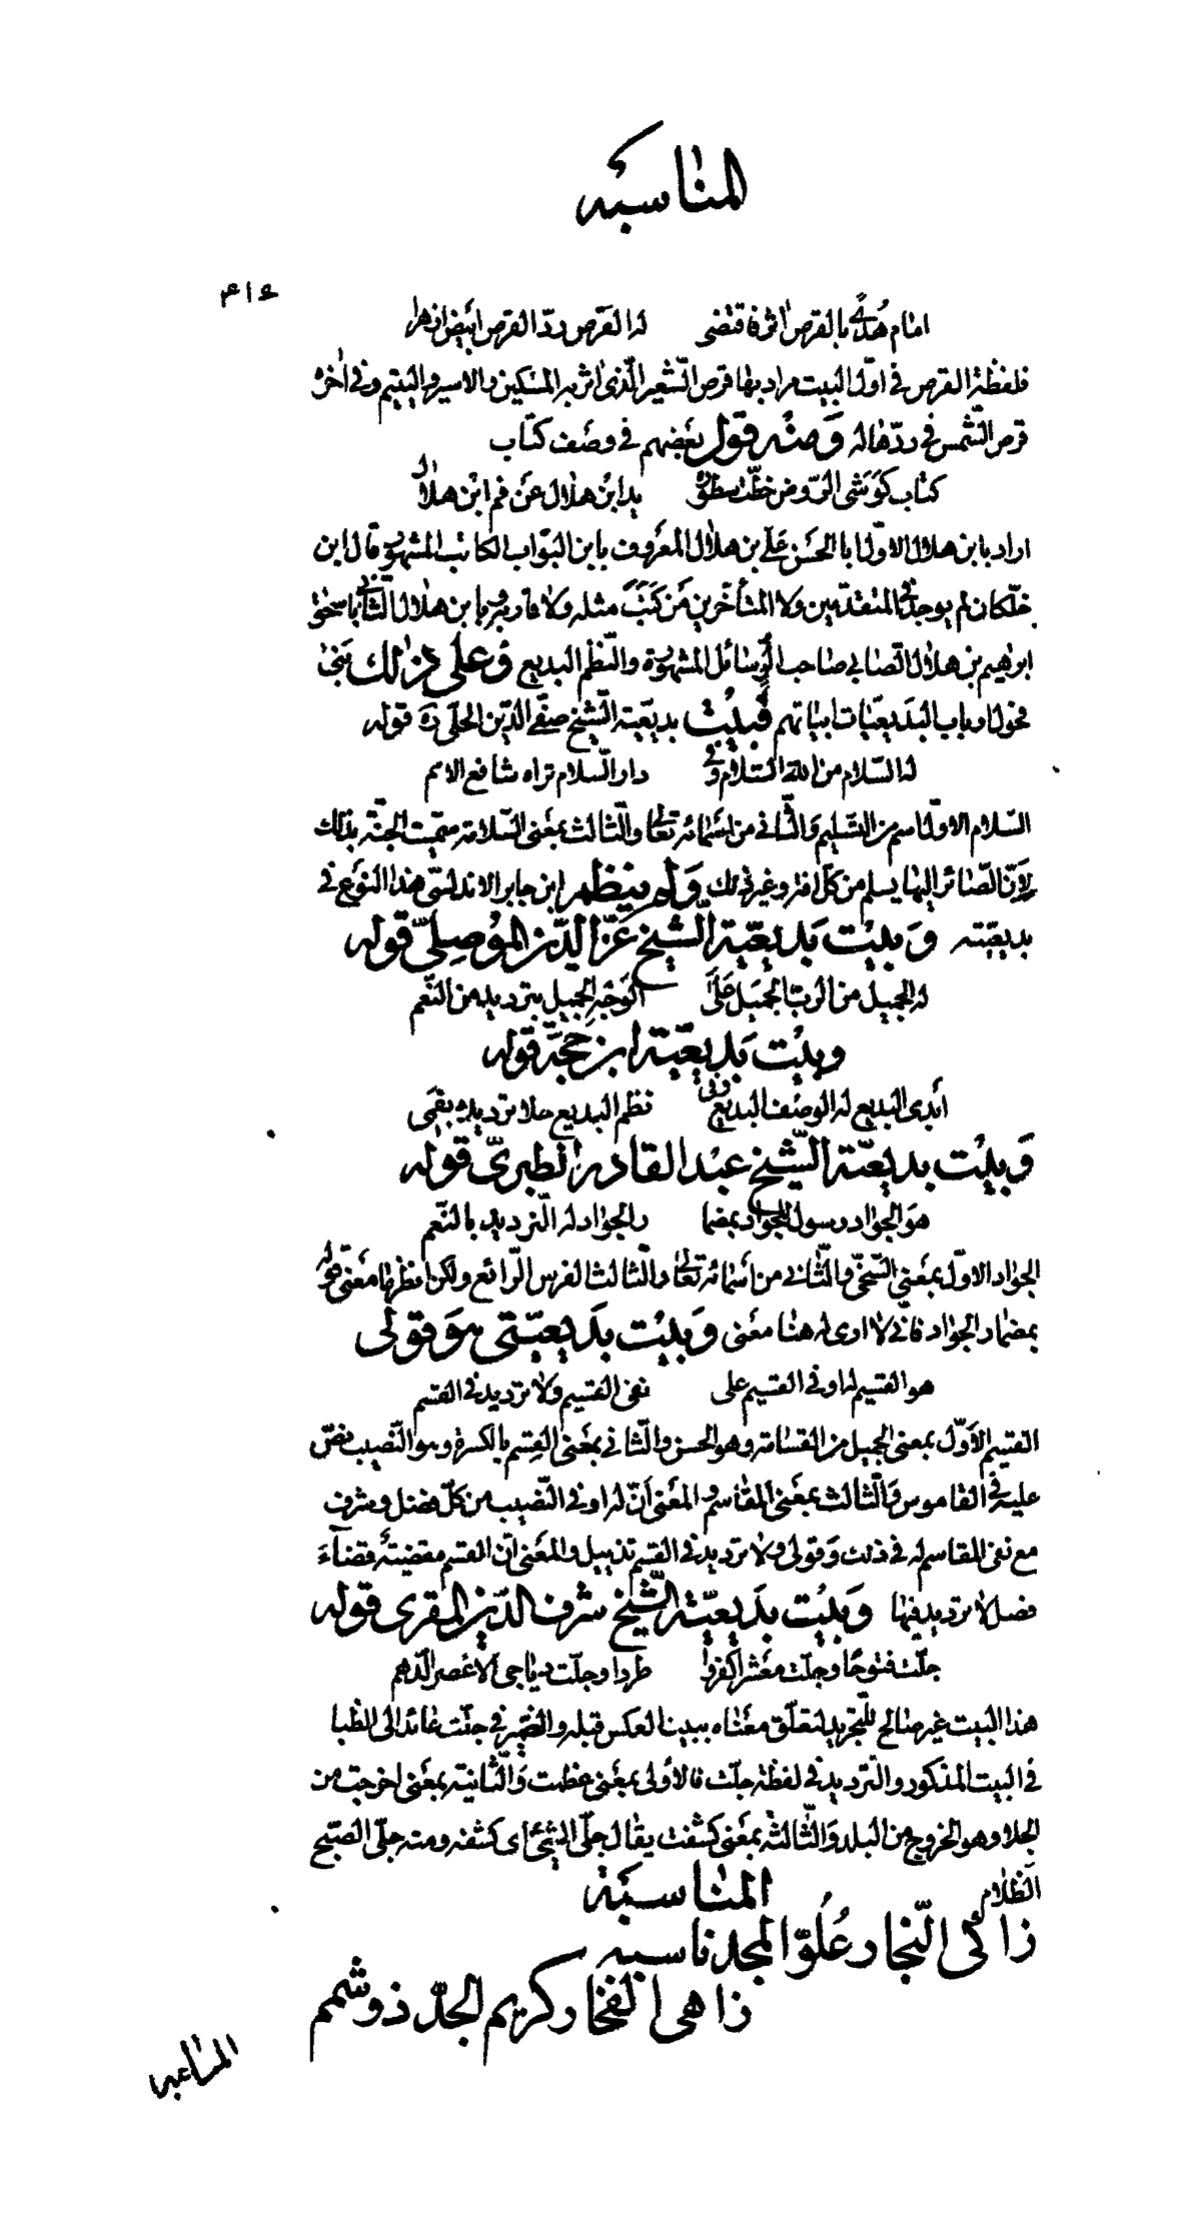 المناسبة
۴۱۴
امام هُدًى بالقرص اثر فاقتضى له القرص ردّ القرص ابيض ازهرا
فلفظة القرص فى اوّل البيت مراد بها قرص الشّعير الّذى اثر به المسكين والاسير واليتيم وفى اخره
قرص الشّمس فى ردّها له وَمنه قول بعضهم فى وصف كتاب
كتاب كوَشى الرّوض خطّت سطوره يد ابن هلال عن فم ابن هلال
اراد بابن هلال الاوّل ابا الحسن علىّ بن هلال المعروف بابن البوّاب الكاتب المشهور قال ابن
خلّكان لم يوجد فى المتقدّمين ولا المتأخّرين مَن كتَبَ مثله ولا قاربه وبابن هلال الثّانى ابا اسحق
ابرهيم بن هلال الصّابى صاحب الرّسائل المشهورة والنّظم البديع وَعلى ذلك بنى
فحول ارباب البديعيّات ابياتهم فبيت بديعيّة الشّيخ صفىّ الدّين الحلّى ره قوله
له السّلام من الله السّلام وفى دار السّلام تراه شافع الامم
السّلام الاوّل اسم من التّسليم وَالثّانى من اسمائه تعالى والثّالث بمعنى السّلامة سمّيت الجنّة بذلك
لانّ الصّائر اليها يسلم من كلّ افة وغير ذلك وَلم ينظم ابن جابر الاندلسىّ هذا النّوع فى
بديعيّته وَبيت بديعيّة الشّيخ عزّ الدّين المُوصِلىّ قوله
له الجميل من الربّ الجميل عَلَى الوجه الجميل بترديد من النّعم
وبيت بَديعيّة ابن حجّة قوله
أبدى البديع له الوصف البديع وفى نظم البديع حلا ترديده بفمى
وَبيت بديعيّة الشّيخ عبد القادر الطبرىّ قوله
هو الجواد رسول للجواد بمضما ر الجواد له التّرديد بالنّعم
الجواد الاوّل بمعنى السّخىّ والثّانى من أسمائه تعالى والثّالث الفرس الرّائع ولكن انظر ما معنى قوله
بمضمار الجواد فانّى لا ارى له هنا معنى وَبيت بَديعيّتى هوَ قولى
هو القسيم له اوفى القسيم على نفى القسيم ولا ترديد فى القسم
القسيم الأوّل بمعنى الجميل من القسامة وهو الحسن والثّانى بمعنى القِسم بالكسرة وهو النّصيب نصّ
عليه فى القاموس وَالثّالث بمعنى المقاسم والمعنى انّ له اوفى النّصيب من كلّ فضل وشرف
مع نفى المقاسم له فى ذلك وَقولى ولا ترديد فى القسم تذييل والمعنى انّ القسم مقضيّة قضآءَ
فصل لا ترديد فيها وَبيت بدَيعيّة الشّيخ شرف الدّين المقرى قوله
جلّت فتوحًا وجلّت معشرا كفروا طردا وجلّت دياجى الاعصر الدّهم
هذا البيت غير صالح للتّجريد لتعلّق معناه ببيت العكس قبله والضّمير فى جلّت عائد الى الظّبا
فى البيت المذكور والتّرديد فى لفظة جلّت فالأولى بمعنى عظمت وَالثّانية بمعنى اخرجت من
الجلاء وهو الخروج من البلد وَالثّالثة بمعنى كشفت يقال جلّى الشّىء اى كشفه ومنه جلّى الصّبح
الظّلام
المناسبة
زاكى النّجار عُلُوّ المجد ناسبه
زاهى الفخار كريم الجدّ ذو شمم